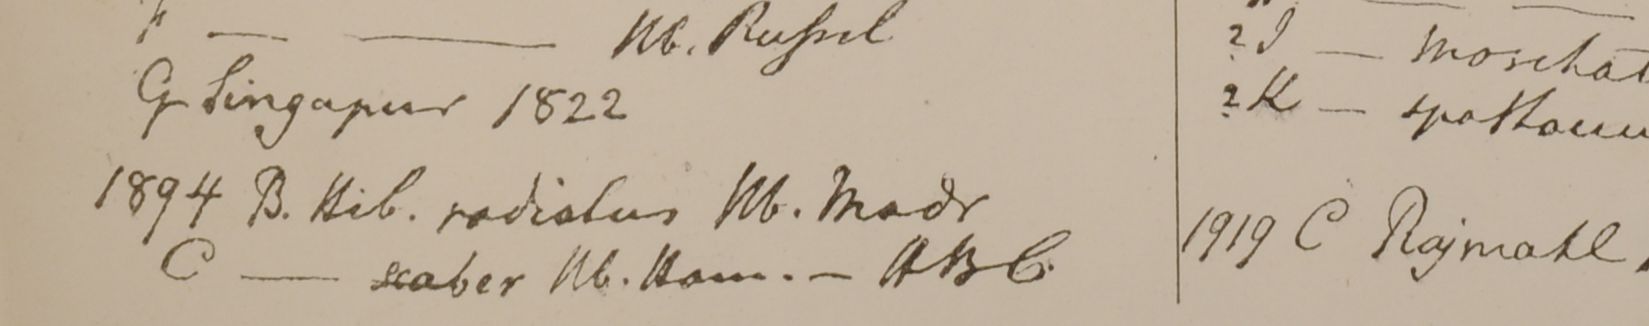 F — — Hb. Russel
G Singapur 1822
1894 B. Hib. radiatus Hb. Madr
C — scaber Hb. Ham. — HBC.
2 I — moschat
2 K — spathaceu
1919 C Rajmahl